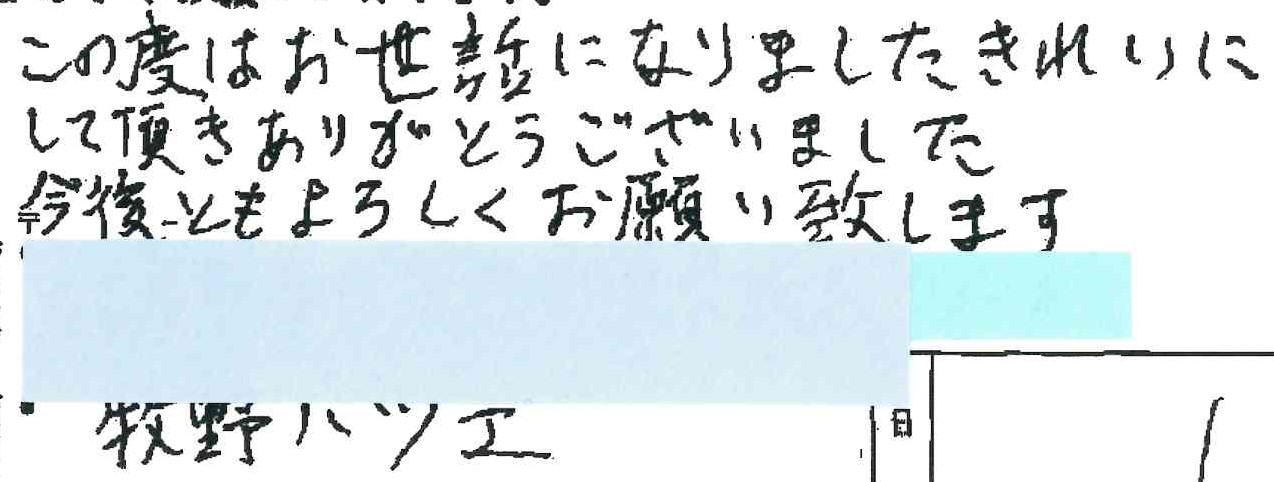 この度はお世話になりましたきれいに
して頂きありがとうございました
今後ともよろしくお願い致します
牧野ハツエ
日